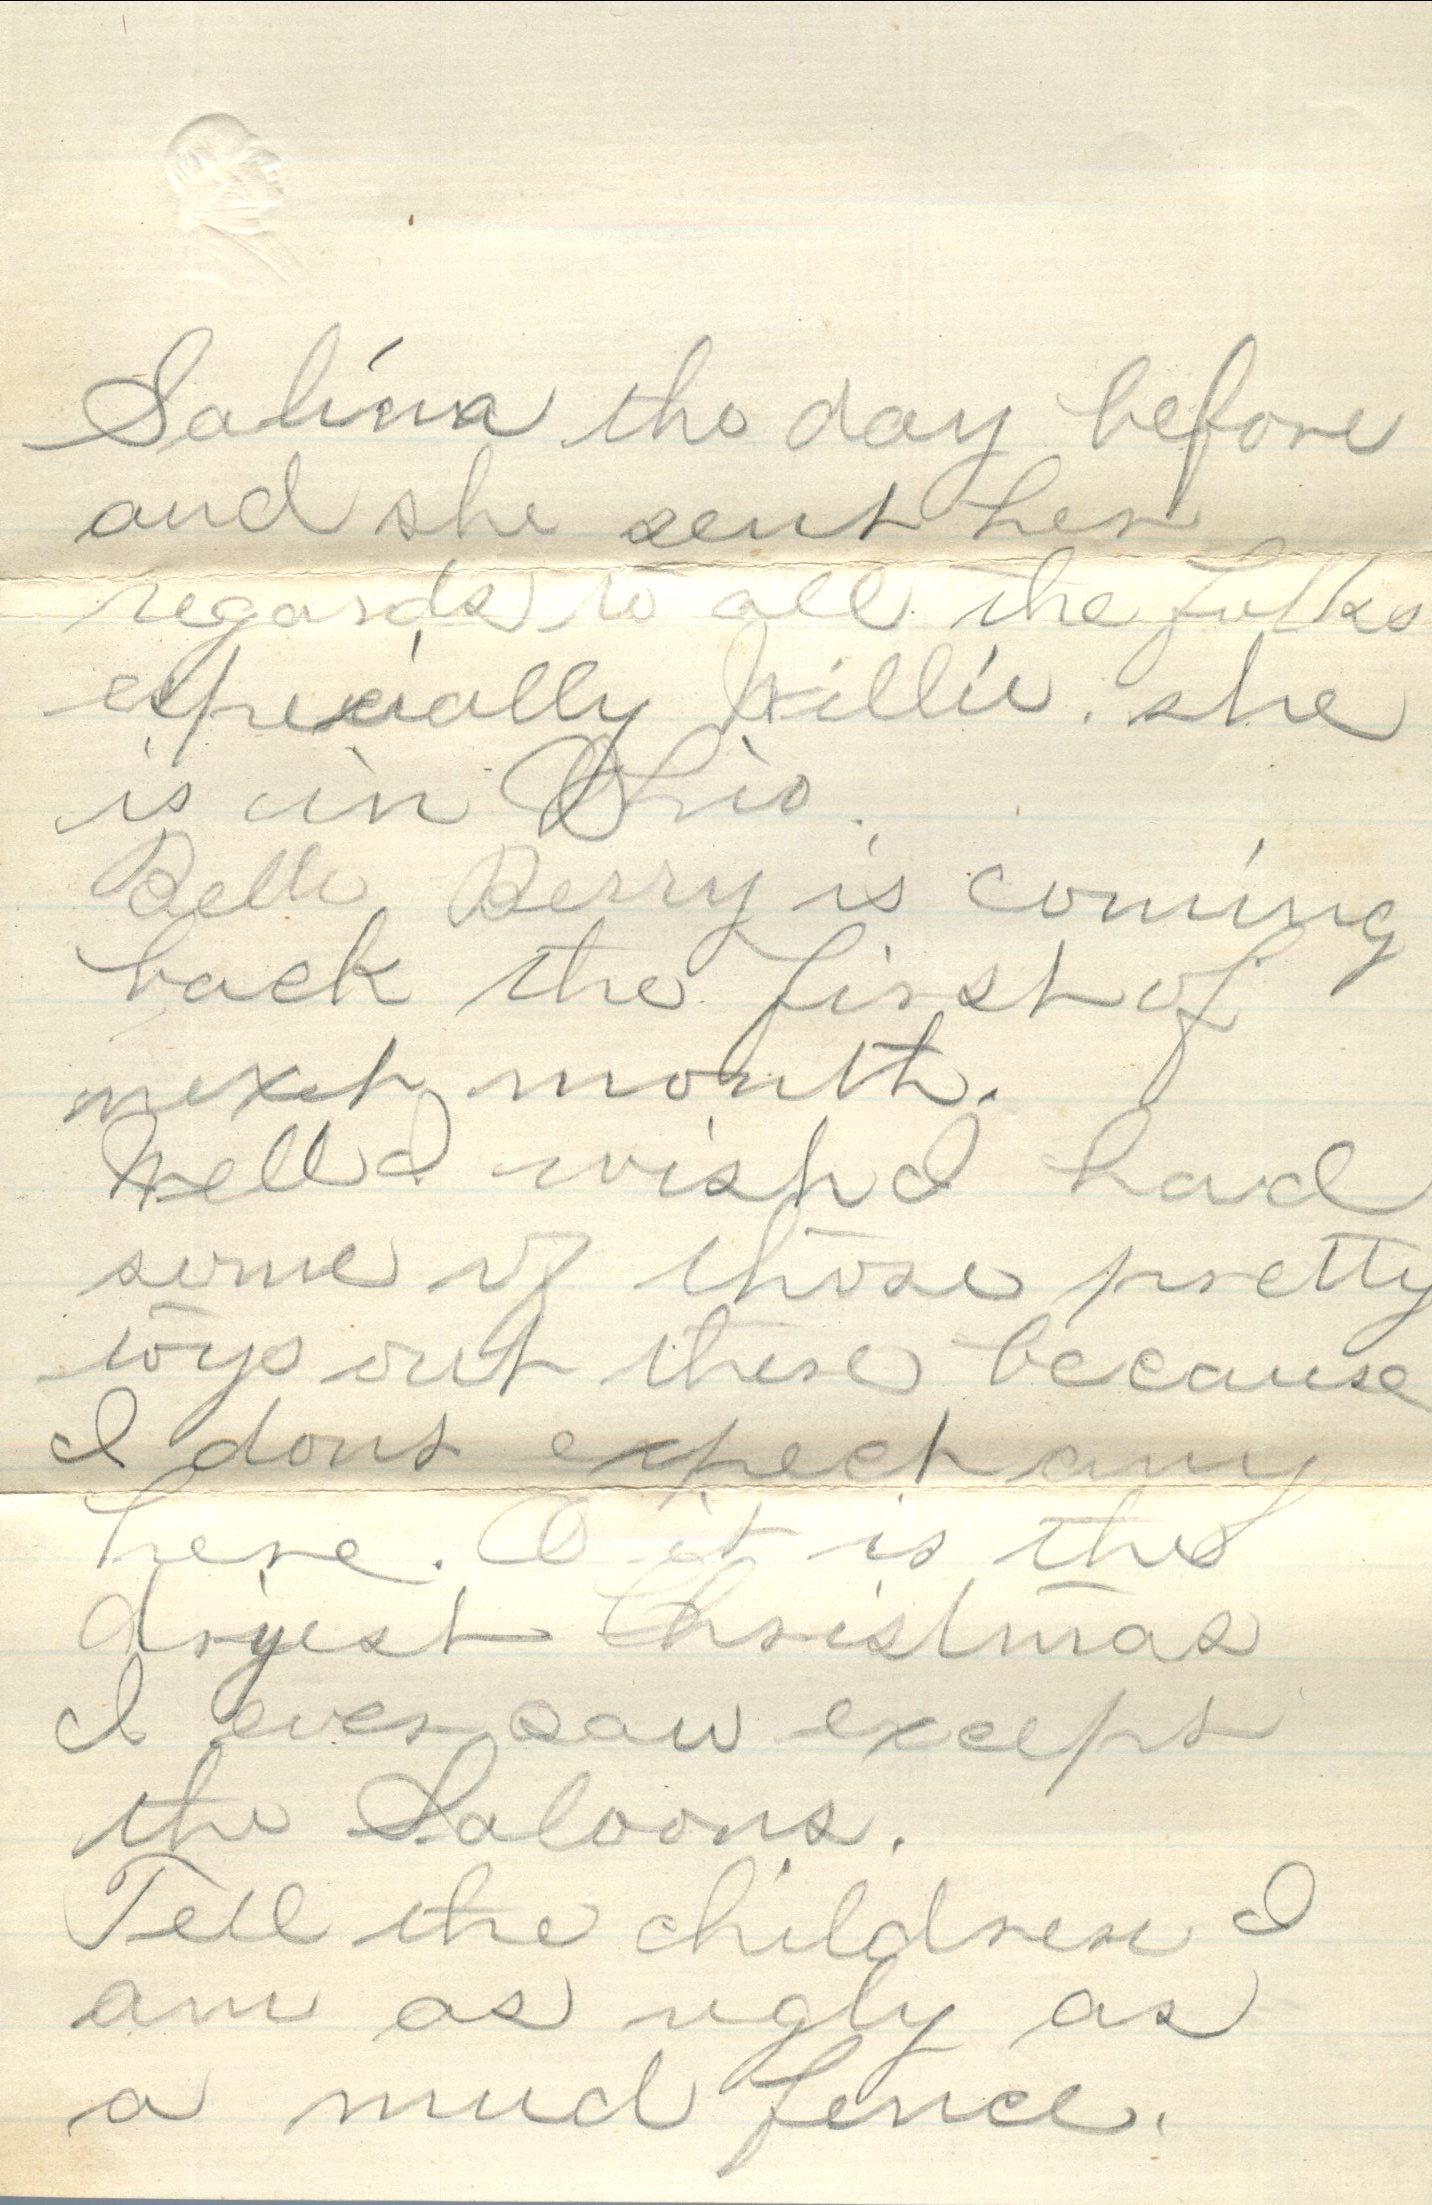 Salina the day before
and she sent her
regards to all the folks
especially Willie. she
is in Ohio.
Belle Berry is coming
back the first of
next month.
Well I wish I had
some of those pretty
toys out there because
I dont expect any
here. O it is the
dryest Christmas
I ever saw except
the Saloons.
Tell the children I
am as ugly as
a mud fence.